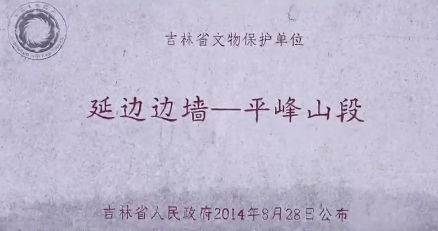 吉林省文物保护单位
延边边墙—平峰山段
吉林省人民政府2014年8月28日公布